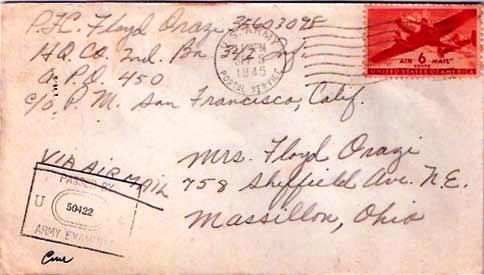 P.F.C. Floyd Orazi 35603098
HQ. CO. 2nd. Bn. Inf.
A.P.O. 450
c/o P.M. San Francisco, Calif.
U.S. ARMY
1945
POSTAL SERVICE
AIR 6 MAIL
CENTS
UNITED STATES OF AMERICA
VIA AIR MAIL
Mrs. Floyd Orazi
758 Sheffield Ave. N.E.
Massillon, Ohio
PASSED BY
U 50422
ARMY EXAMINER